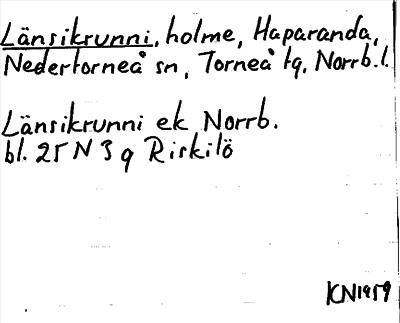 Länsikrunni, holme, Haparanda,
Nedertorneå sn, Torneå tg, Norrb. l.
Länsikrunni ek Norrb.
bl. 25 N 3 g Riskilö
KN1959